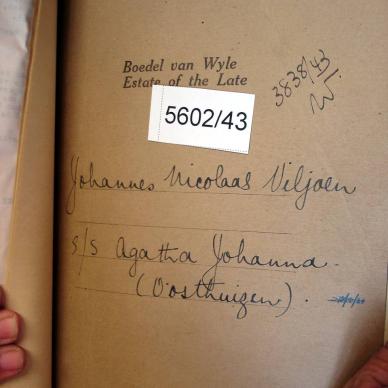 Boedel van Wyle
Estate of the Late
3838/43
W.
5602/43
Johannes Nicolaas Viljoen
s/s Agatha Johanna
(Oosthuizen).